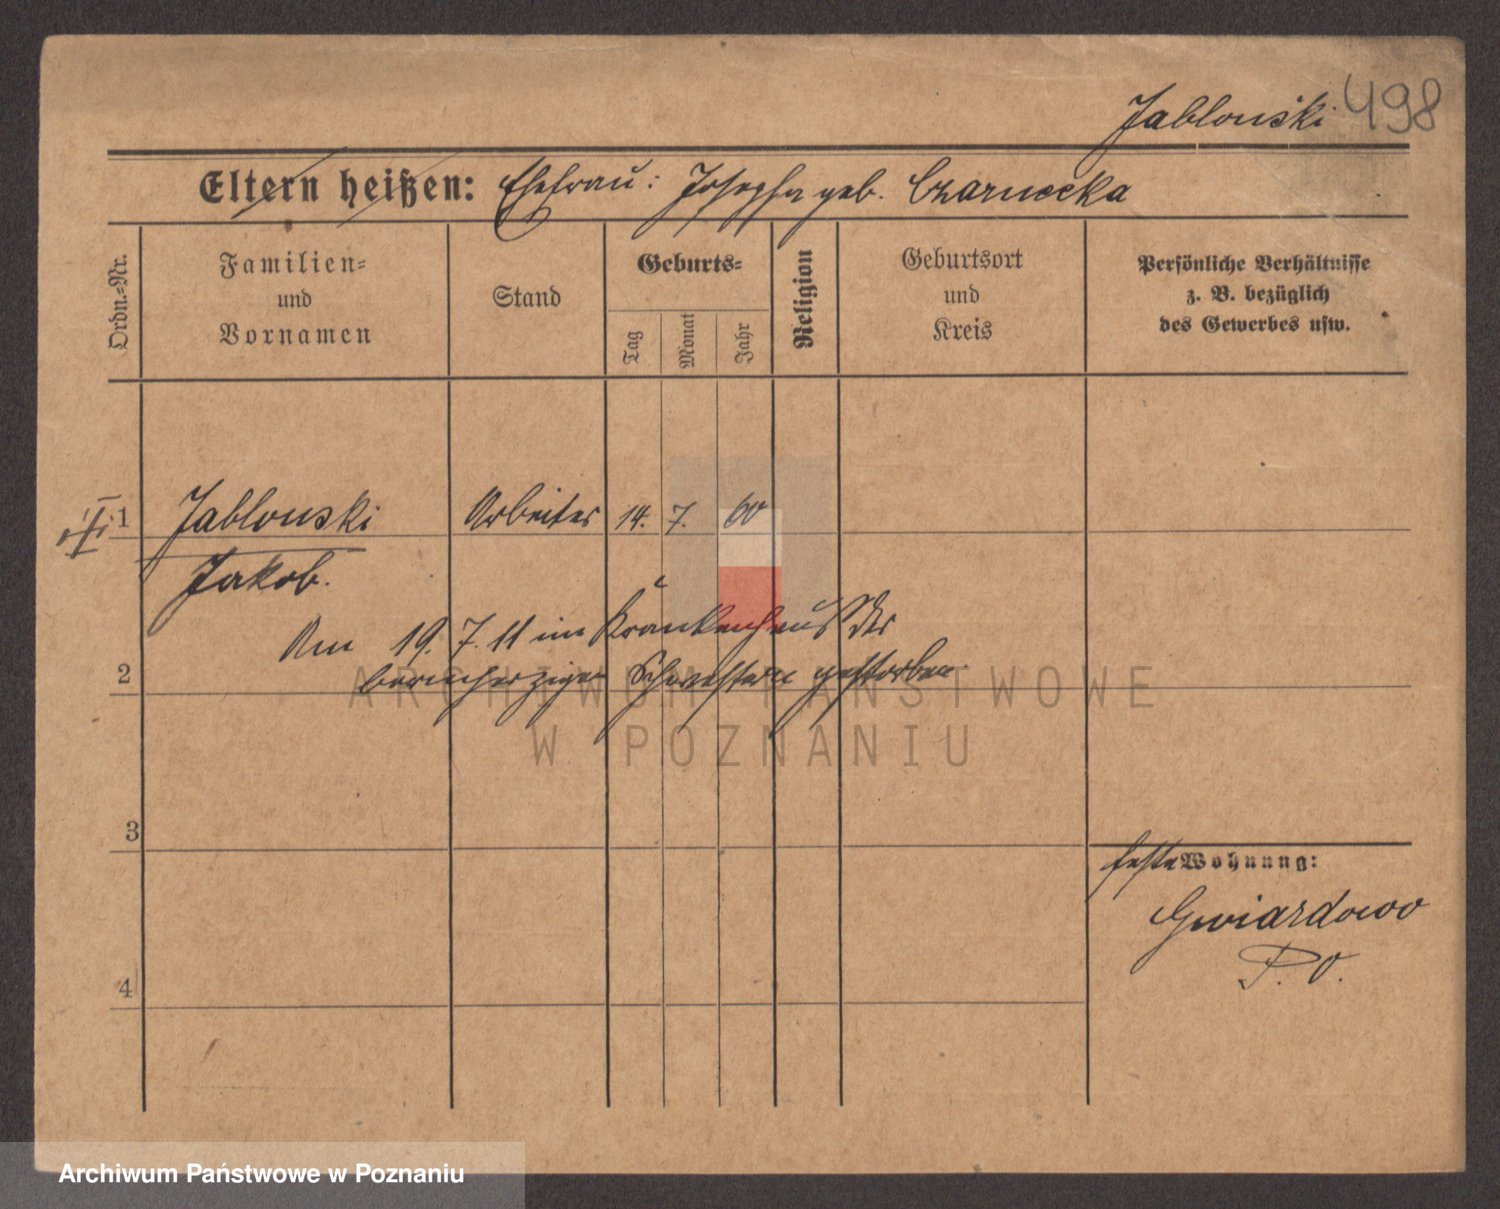 Jabloński 498
Eltern heißen: Ehefrau: Josepha geb. Czarnecka
Ordn.-Nr.
Familien-
und
Vornamen
Stand
Geburts-
Tag
Monat
Jahr
Religion
Geburtsort
und
Kreis
Persönliche Verhältnisse
z. B. bezüglich
des Gewerbes usw.
1 Jablonski Arbeiter 14. 7. 60
Jakob.
Am 19. 7. 11 im Krankenhaus der
2 barmherzigen Schwestern gestorben.
ARCHIWUM PAŃSTWOWE
W POZNANIU
3
feste Wohnung:
Gwiardowo
P. O.
4
Archiwum Państwowe w Poznaniu